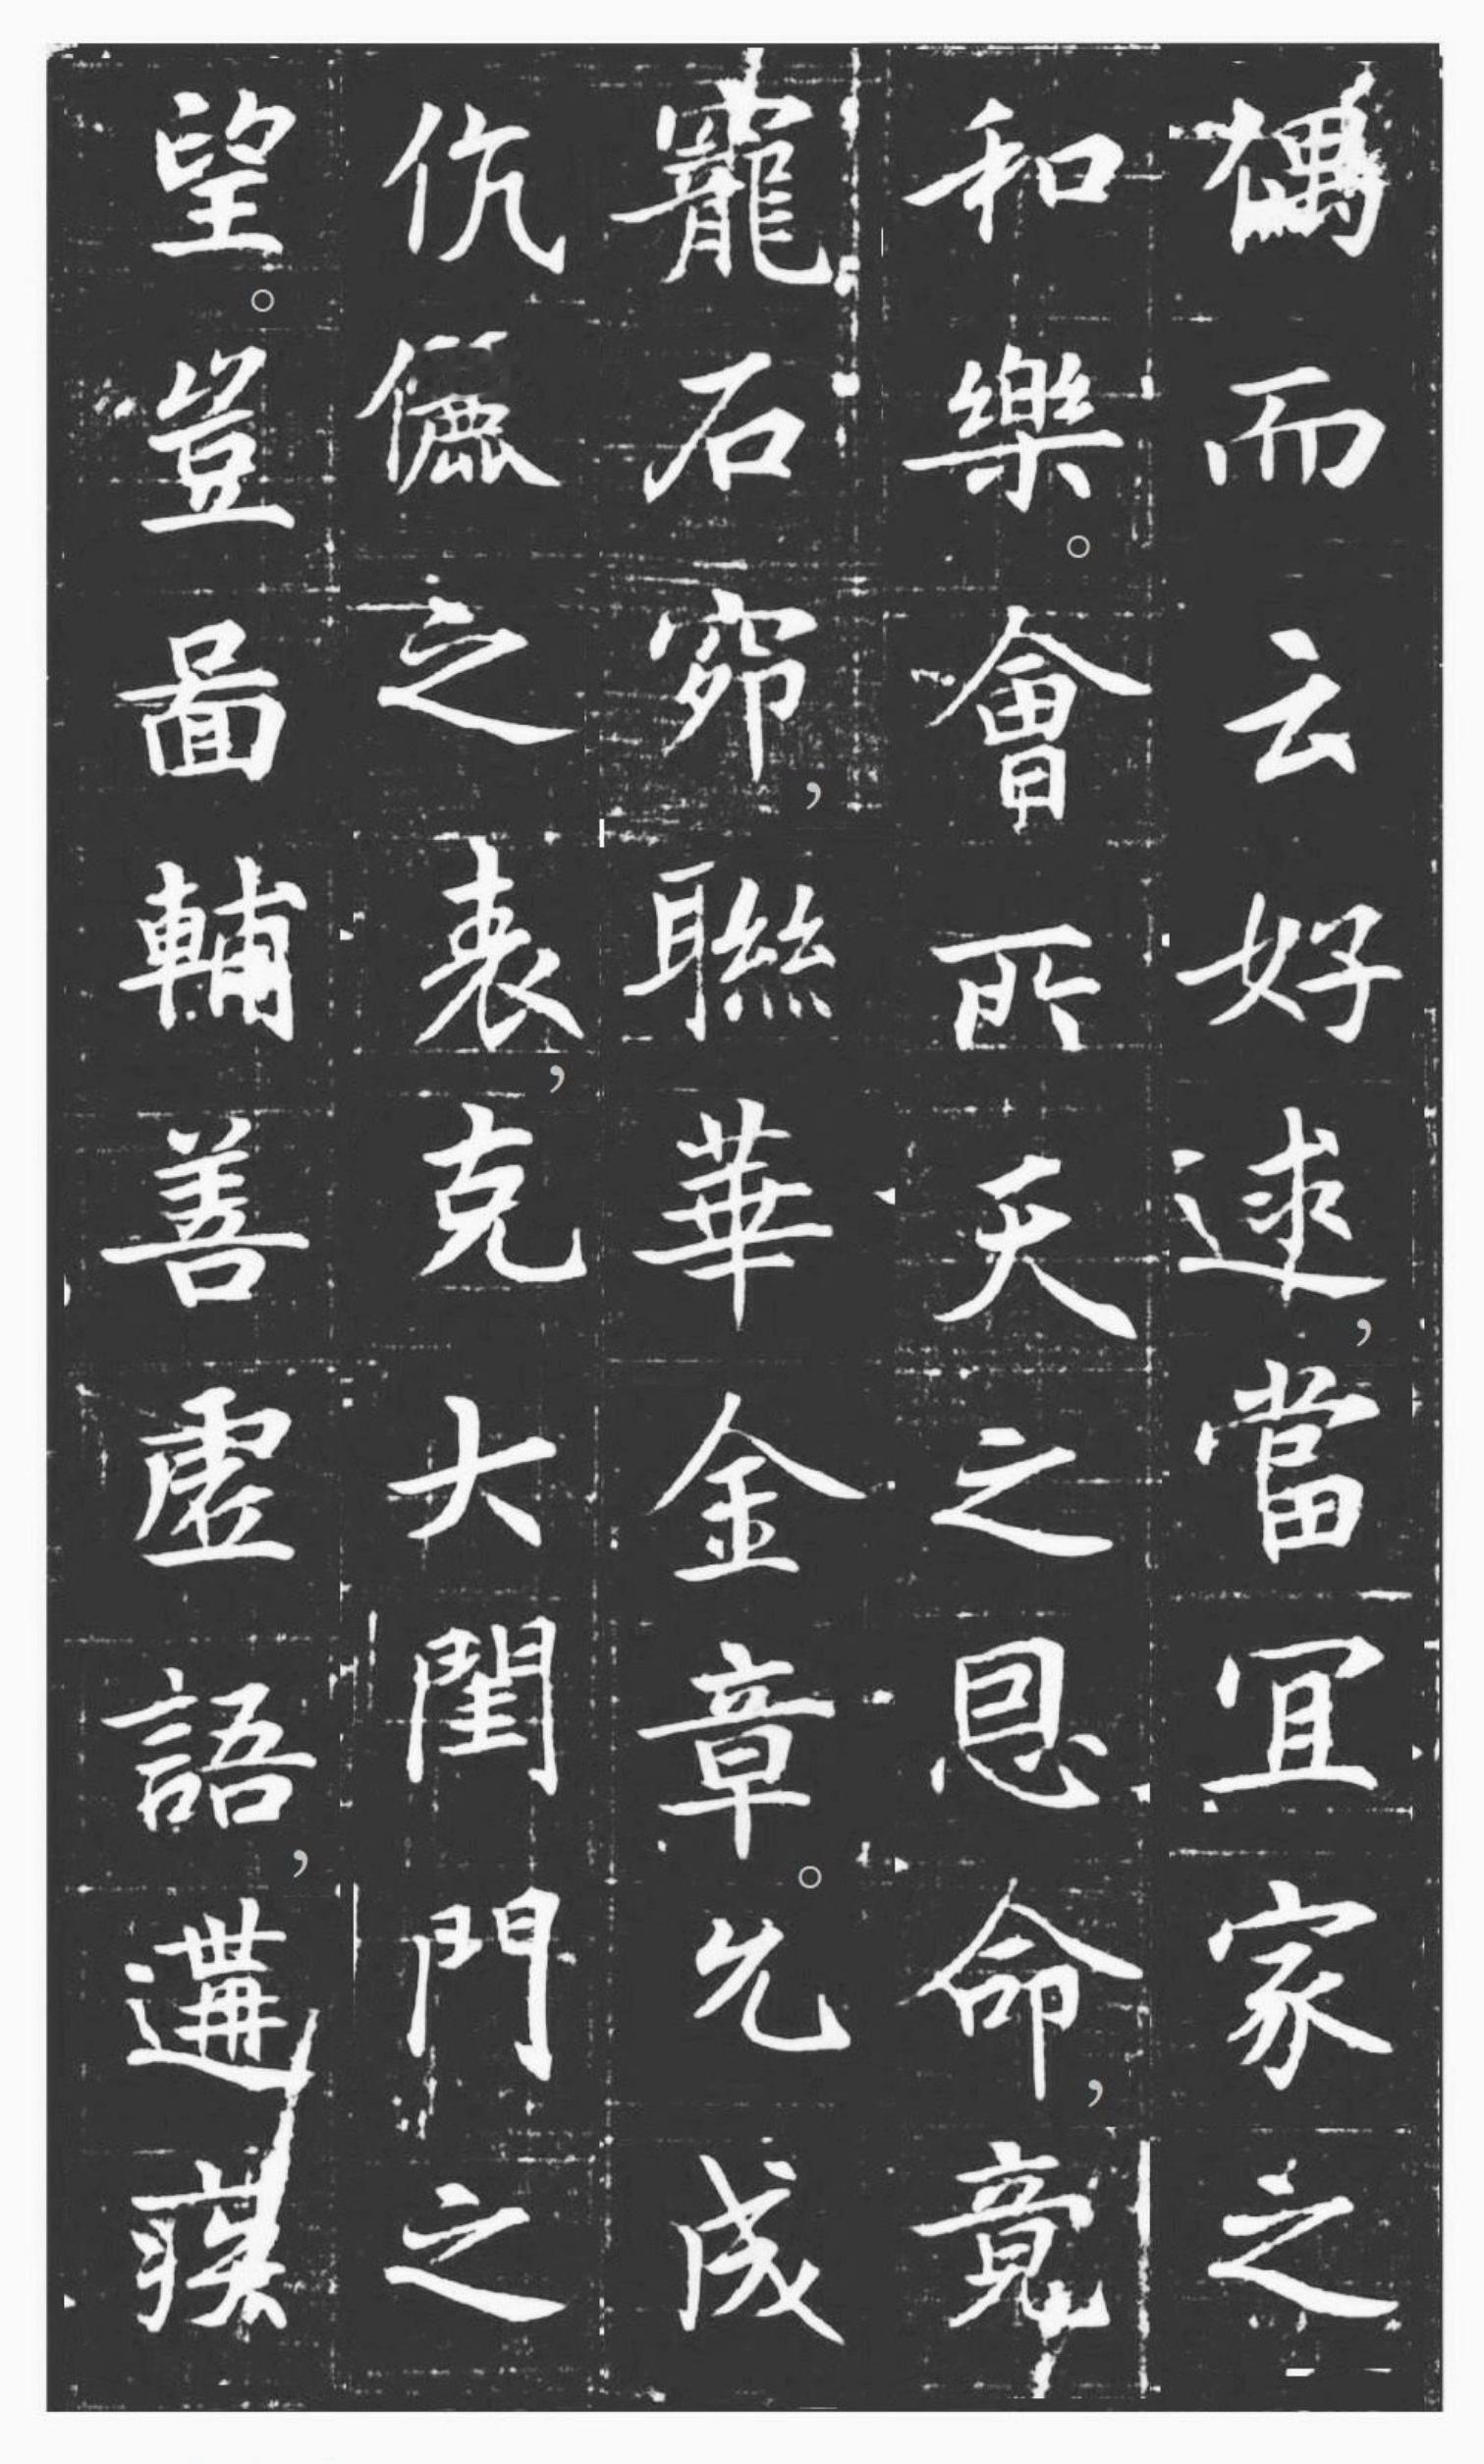 偶而云好逑，當宜家之
和樂。會所天之恩命，竟
寵石窌，聯華金章。允成
伉儷之表，克大閨門之
望。豈圖輔善虛語，遘疾